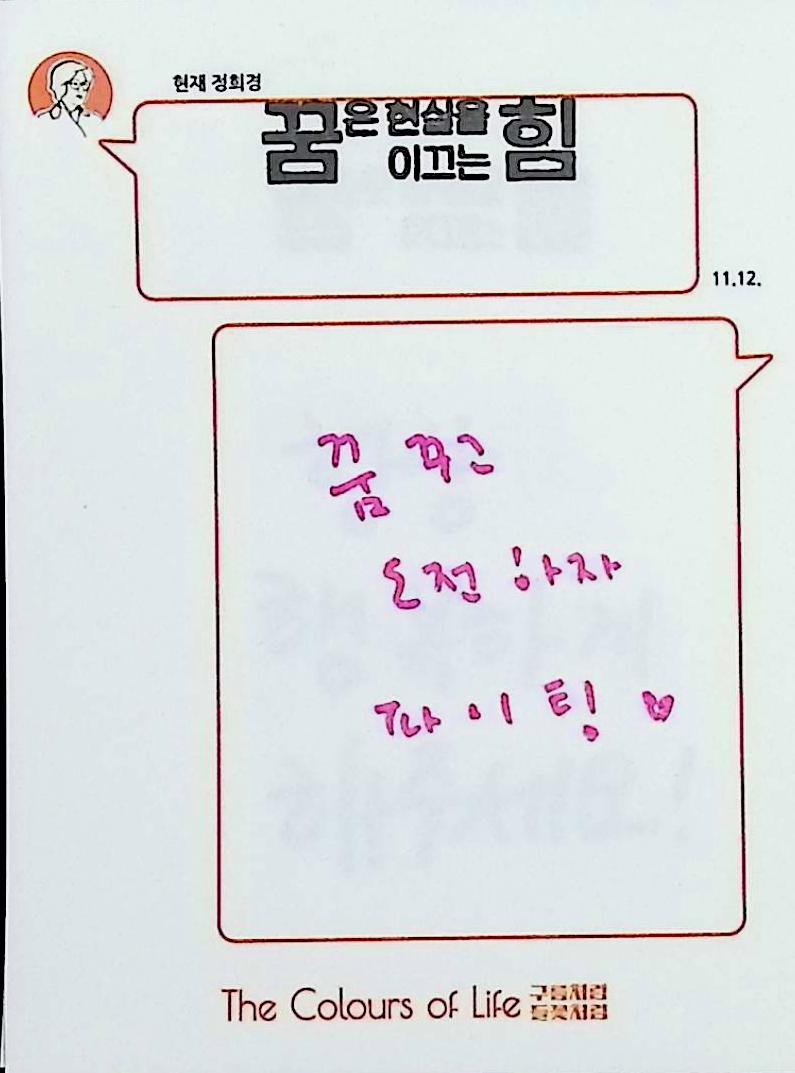 현재 정희경
꿈은 현실을
이끄는 힘
11.12.
꿈 꾸고
도전 하자
파이팅 ♡
The Colours of Life 구름처럼
들꽃처럼